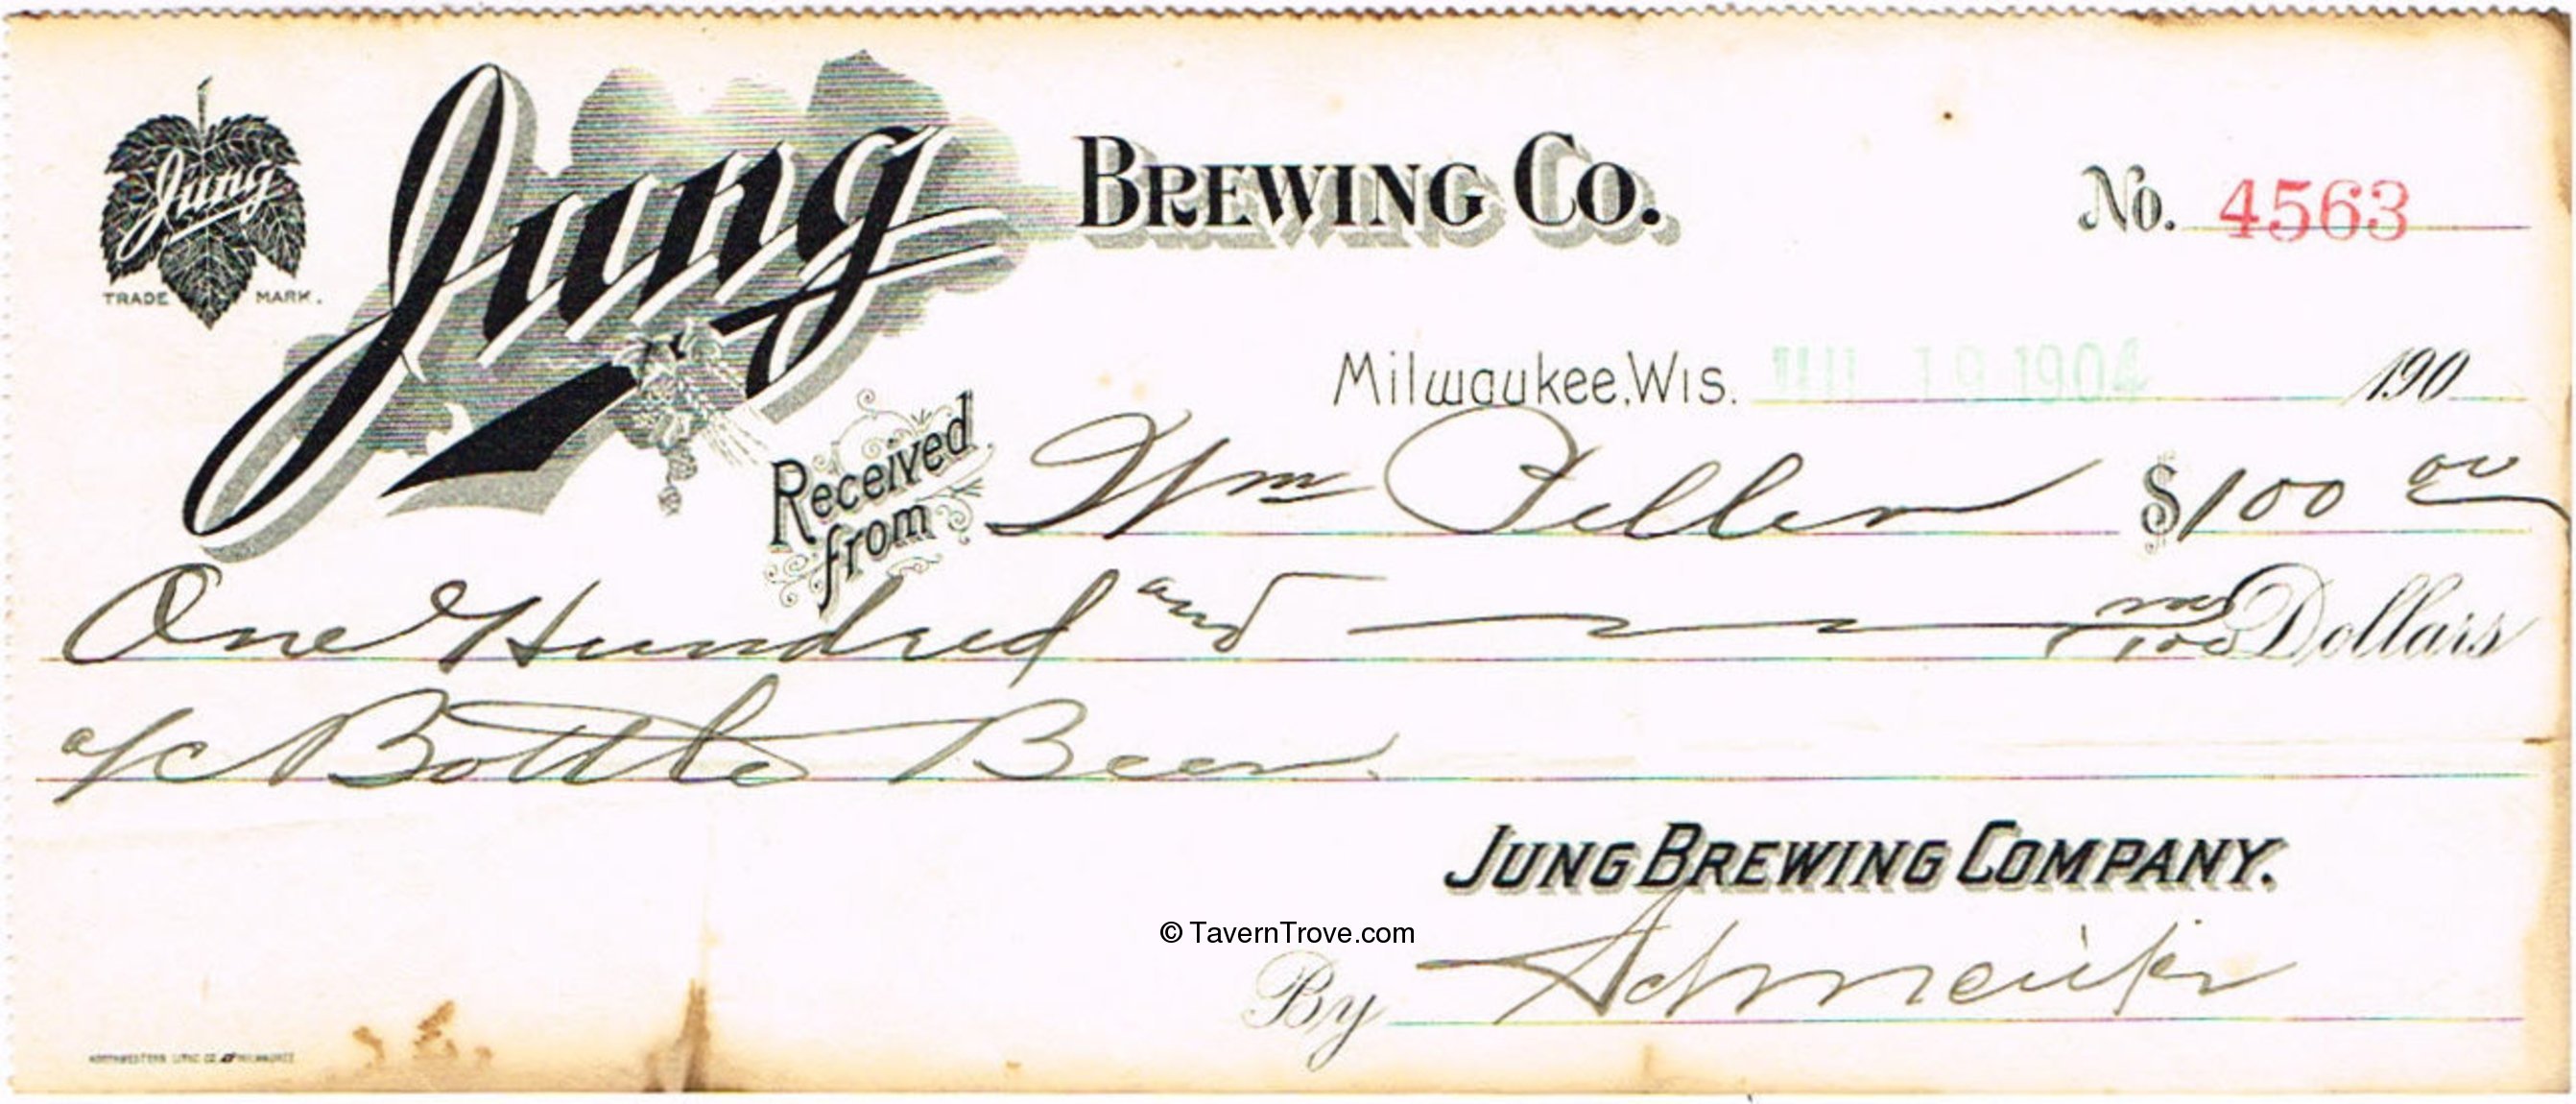 Jung
TRADE MARK.
Jung BREWING CO.
No. 4563
Milwaukee, Wis. 19 1904 190
Received from Wm $100 00
One Hundred and no/100 Dollars
a/c Bottle Beer.
JUNG BREWING COMPANY.
© TavernTrove.com
By
NORTHWESTERN LITHO. CO. MILWAUKEE